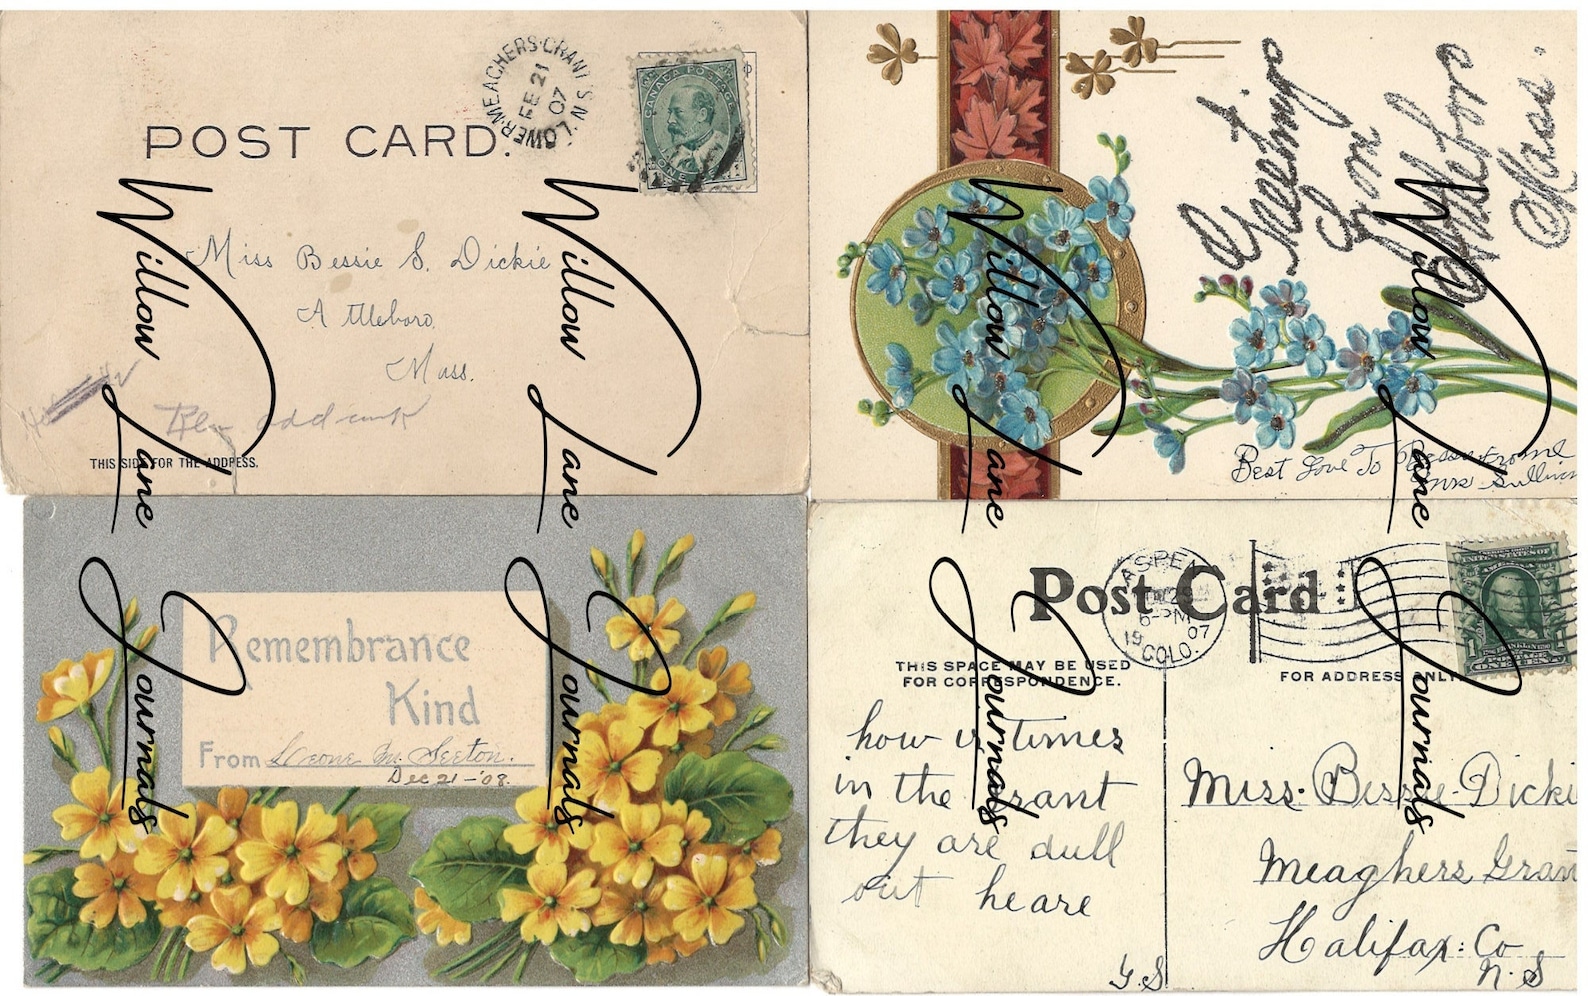 LOWER·MEACHERS·GRANT N.S.
FE 21
07
CANADA POSTAGE
ONE
POST CARD.
Miss Bessie S. Dickie
Attleboro
Mass.
THIS SIDE FOR THE ADDRESS.
Greetings
from
Attleboro
Mass.
Best Love To Bessie from
Mrs Sullivan
Remembrance
Kind
From Leone M. Seeton.
Dec 21-'08.
Post Card
ASPEN
25
6-PM
19 07
COLO.
SERIES 1902
UNITED STATES OF
AMERICA
POSTAGE
ONE CENT
THIS SPACE MAY BE USED
FOR CORRESPONDENCE.
FOR ADDRESS ONLY.
how is times
in the Grant
they are dull
out heare
G.S.
Miss. Bessie Dicki
Meaghers Gran
Halifax: Co
N.S
Willow Lane Journals
Willow Lane Journals
Willow Lane Journals
Willow Lane Journals